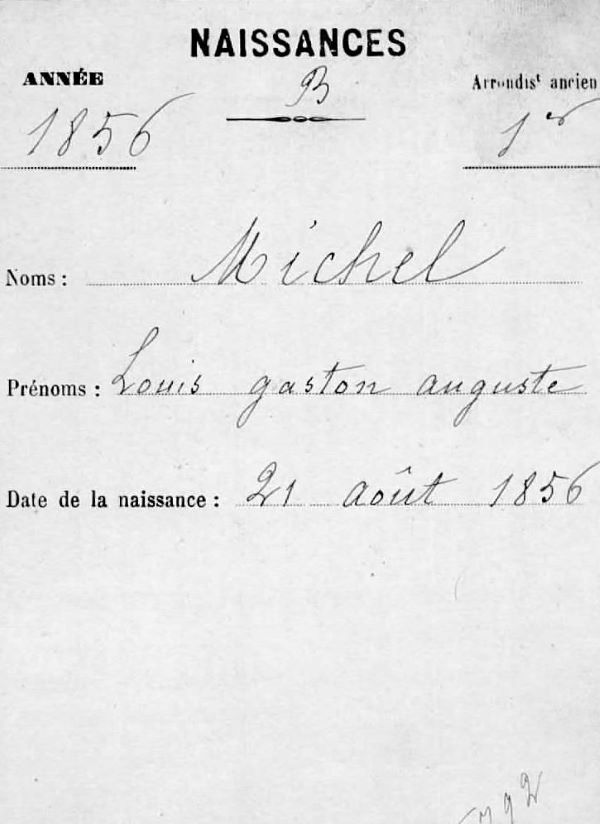 NAISSANCES
ANNÉE B Arrondisᵗ ancien
1856 1er
Noms : Michel
Prénoms : Louis gaston auguste
Date de la naissance : 21 août 1856